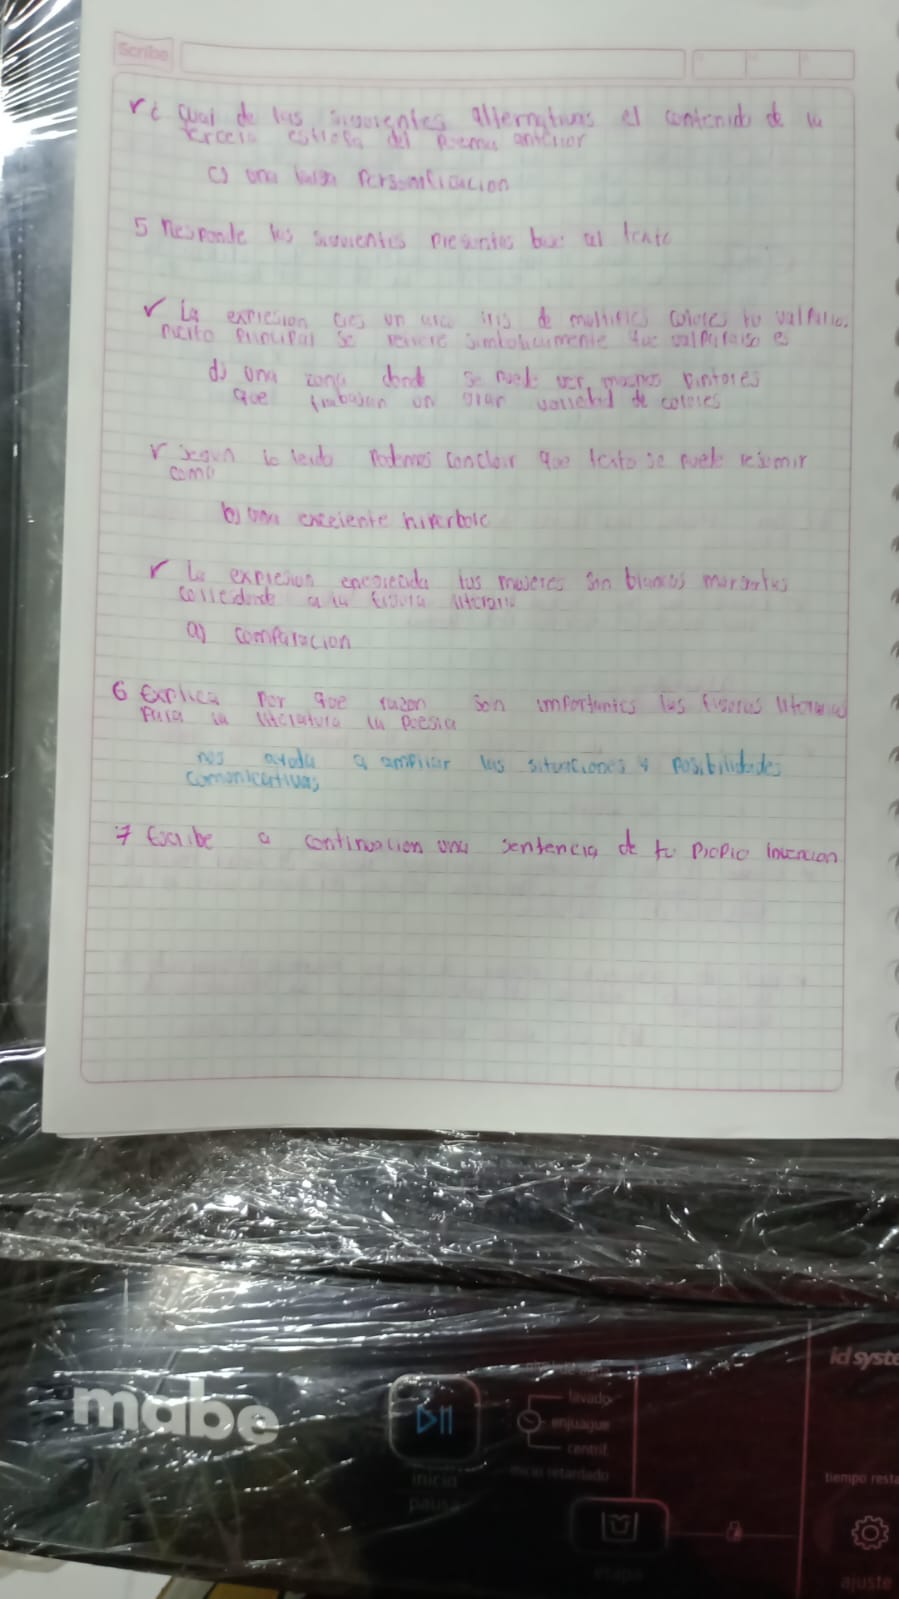 Scribe
✓ ¿ Cual de las siguientes alternativas el contenido de la
tercera estrofa del poema anterior
c) una larga Personificacion
5 Responde las siguientes preguntas base al texto
✓ La expresion eres un arco iris de multiples colores tu valparaiso
puerto Principal se refiere simbolicamente que valparaiso es
d) una zona donde se puede ver muchos pintores
que trabajan un gran variedad de colores
✓ segun lo leido Podemos concluir que texto se puede resumir
como
b) una excelente hiperbole
✓ La expresion encerrada tus mujeres son blancas margaritas
corresponde a la figura literaria
a) comparacion
6 Explica Por que razon son importantes las figuras literarias
Para la literatura la poesia
nos ayuda a ampliar las situaciones y posibilidades
comunicativas
7 Escribe a continuacion una sentencia de tu propio invencion
id syste
mabe
lavado
enjuague
centrif.
inicio retardado
inicio
pausa
tiempo resta
etapa
ajuste